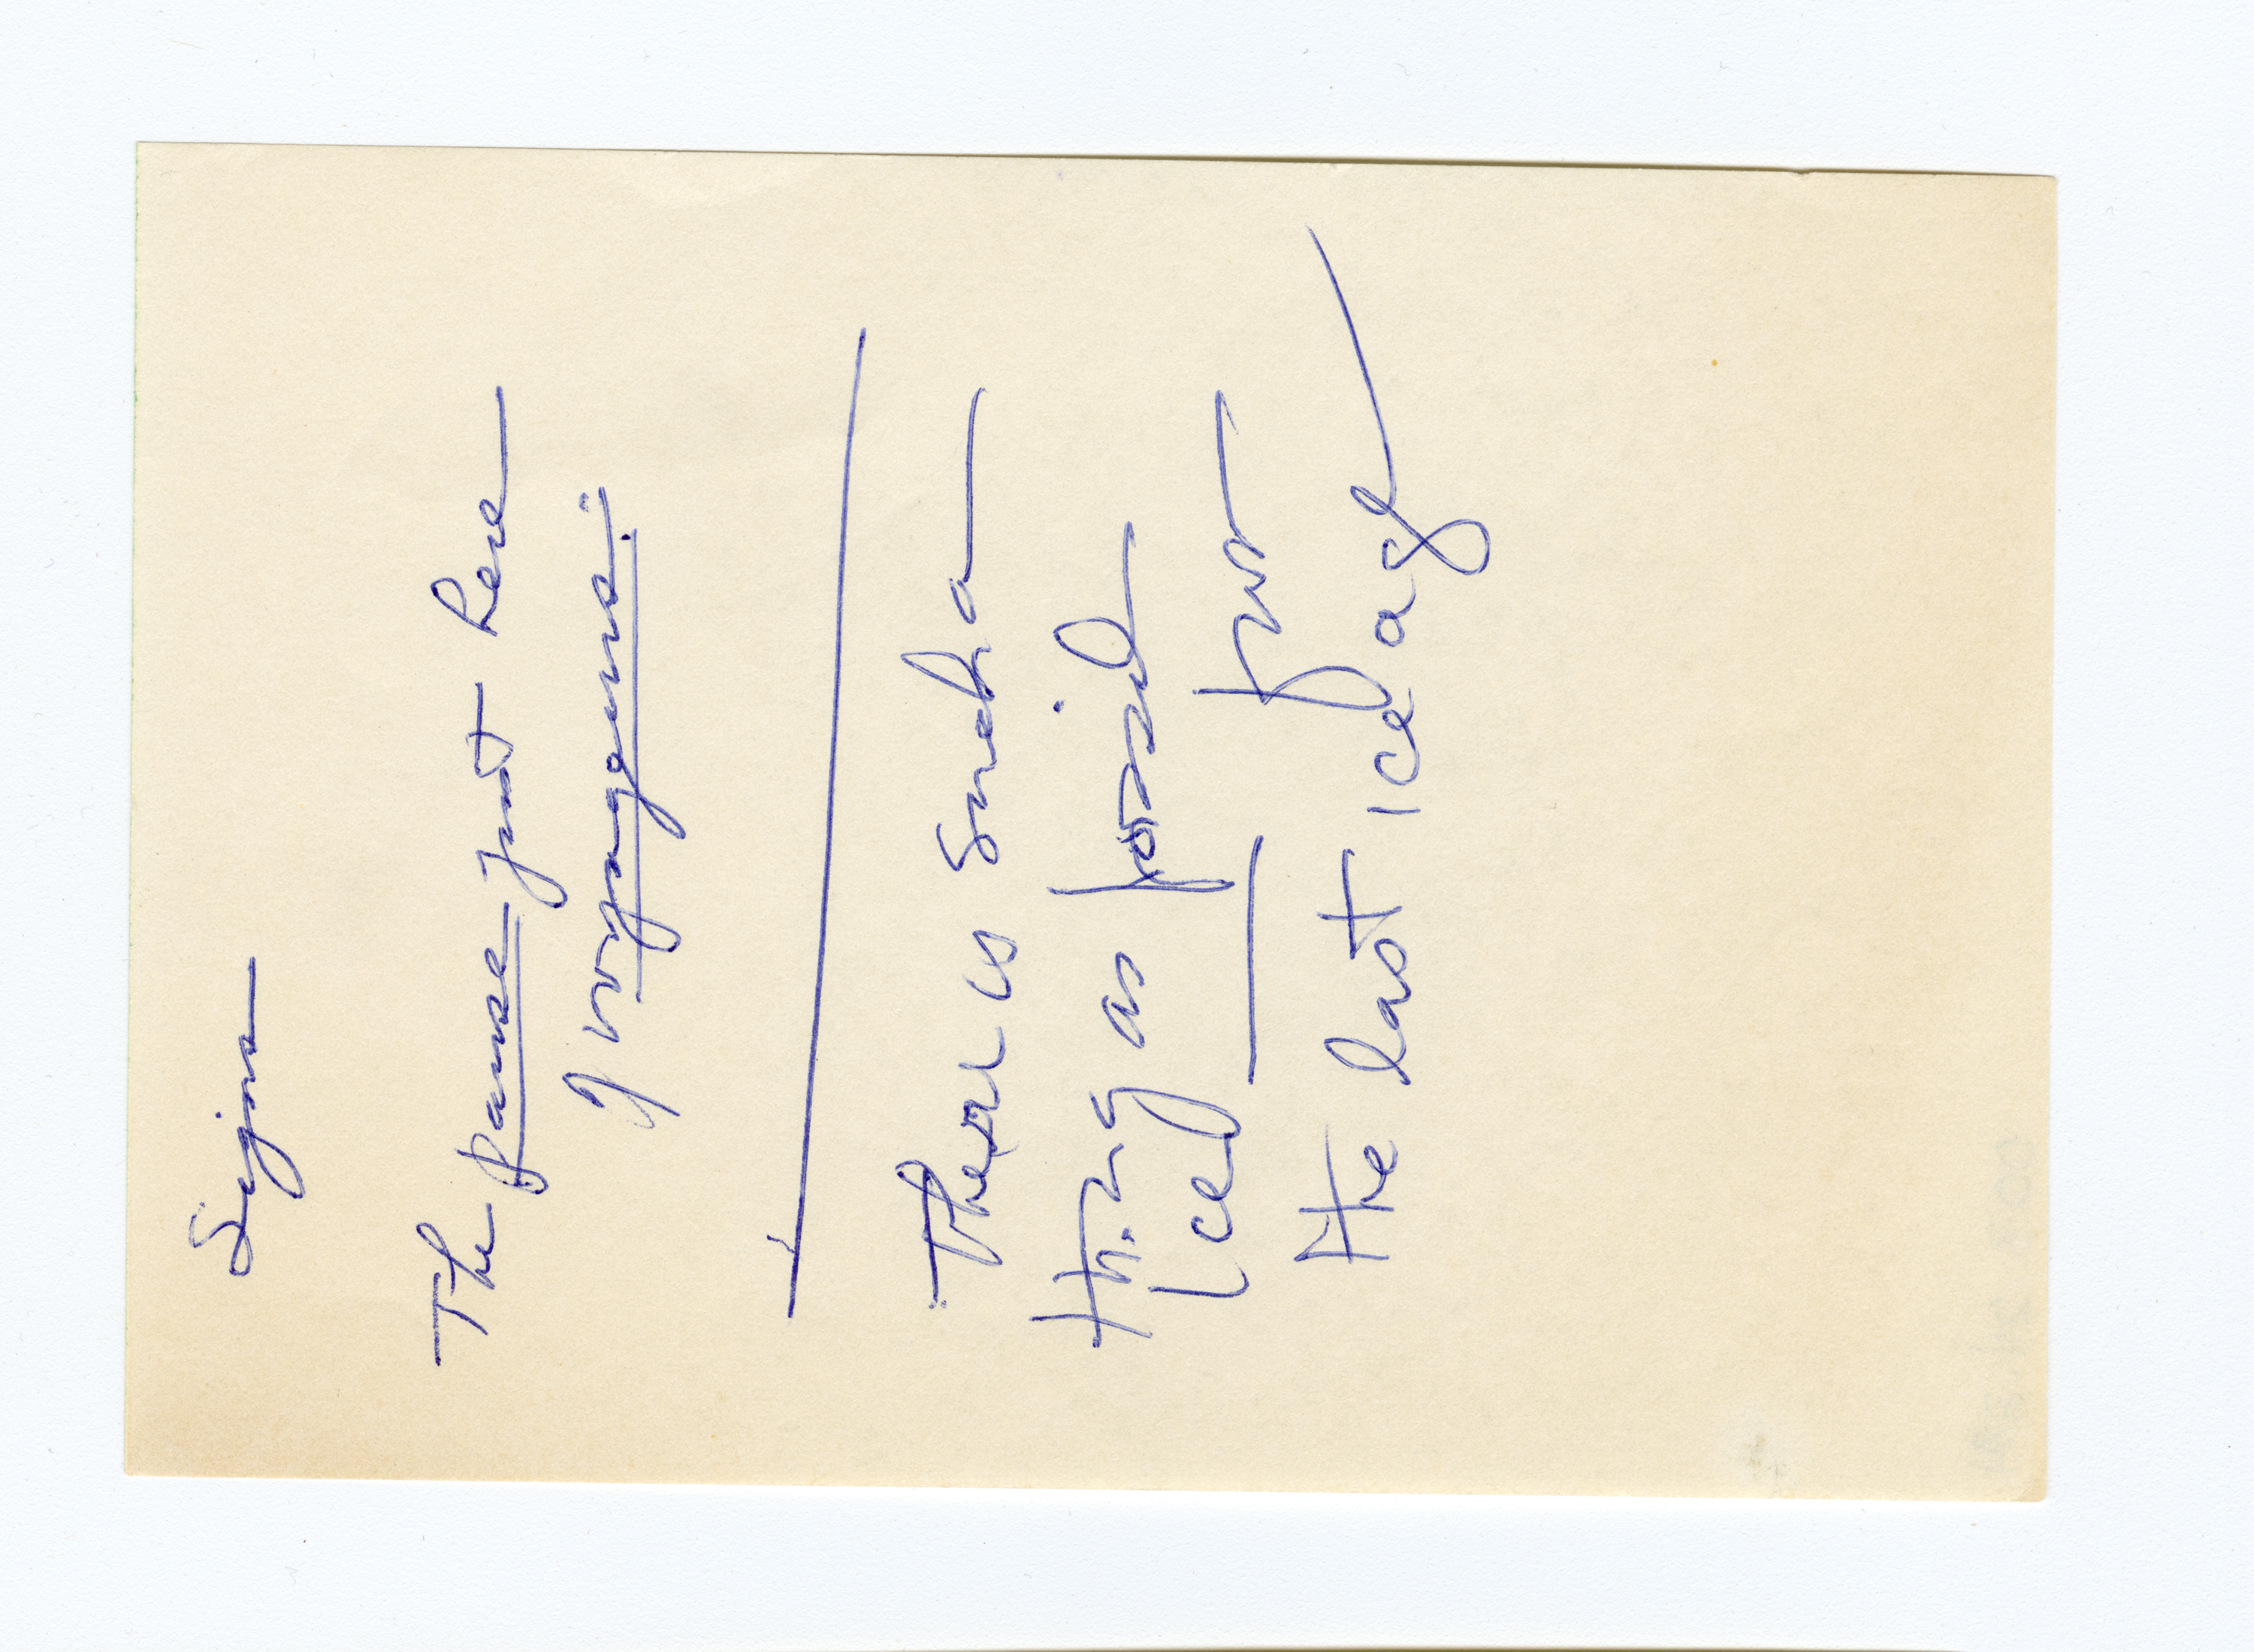 Signs
The pause just here
of voyageurs.
There is such a
thing as fossil
ice — from
the last ice age